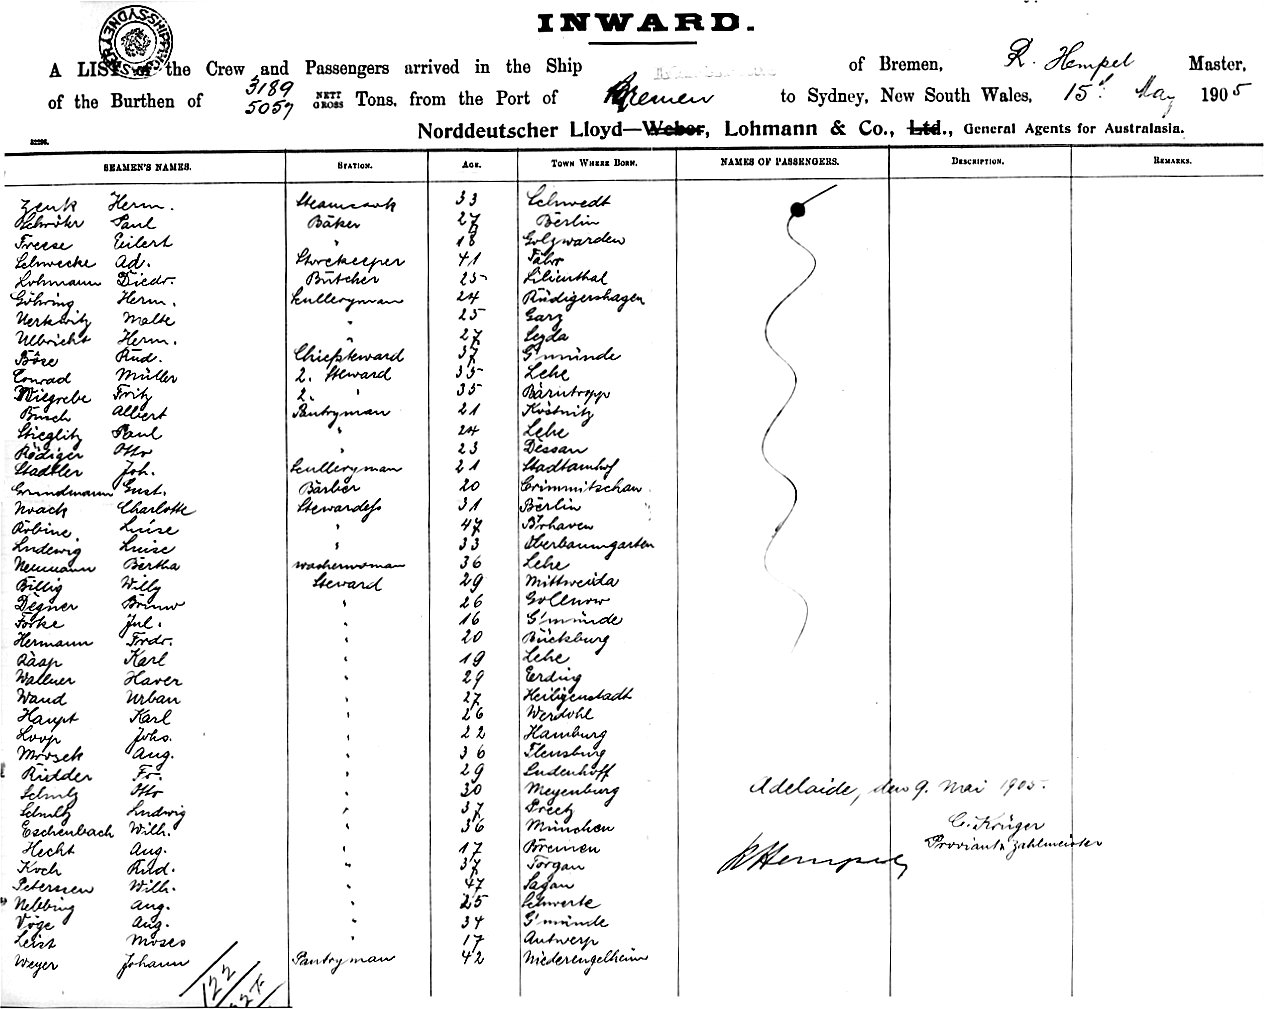 INWARD.
A LIST of the Crew and Passengers arrived in the Ship of Bremen, R. Hempel Master,
of the Burthen of 3189 5057 NETT GROSS Tons, from the Port of Bremen to Sydney, New South Wales, 15th May 1905
Norddeutscher Lloyd—Weber, Lohmann & Co., Ltd., General Agents for Australasia.
SEAMEN'S NAMES. STATION. AGE. TOWN WHERE BORN. NAMES OF PASSENGERS. DESCRIPTION. REMARKS.
Zenk Herm. 33 Schwedt
Schröter Paul Bäker 27 Berlin
Freese Eilert " 18 Golzwarden
Schwecke Ad. Storekeeper 41 Fähr
Lohmann Diedr. Butcher 25 Lilienthal
Göhring Herm. Sculleryman 24 Rüdigershagen
Uerkwitz Malte " 25 Garz
Ulbricht Herm. " 27 Seyda
Böse Rud. Chiefsteward 37 G'münde
Conrad Müller 2. Steward 35 Lehe
Wiegrebe Fritz 2. " 35 Barntropp
Busch Albert Pantryman 21 Köstnitz
Stieglitz Paul " 24 Lehe
Rödiger Otto " 23 Dessau
Stadtler Joh. Sculleryman 21 Stadtamhof
Grundmann Gust. Barber 20 Crimmitschau
Noack Charlotte Stewardess 31 Berlin
Robine Luise " 47 B'rhaven
Ludewig Luise " 33 Oberbaumgarten
Neumann Bertha washerwoman 36 Lehe
Billig Willy Steward 29 Mittweida
Degner Bruno " 26 Gollnow
Förke Jul. " 16 G'münde
Hermann Frdr. " 20 Bückburg
Raap Karl " 19 Lehe
Wallner Xaver " 29 Erding
Wand Urban " 27 Heiligenstadt
Haupt Karl " 26 Werdohl
Loop Johs. " 22 Hamburg
Mrosek Aug. " 36 Flensburg
Ridder Fr. " 29 Ludenhoff
Schulz Otto " 30 Meyenburg
Adelaide, den 9. Mai 1905.
Schultz Ludwig " 37 Preetz
Eschenbach Wilh. " 36 München
C. Krüger
Hecht Aug. " 17 Bremen
Proviantzahlmeister
Koch Rud. " 37 Torgau
R Hempel
Petersen Wilh. " 47 Sagan
Nebbing Aug. " 25 Schwerte
Vöge Aug. " 34 G'münde
Leist Moses " 17 Antwerp
Weyer Johann Pantryman 42 Niederengelheim
122